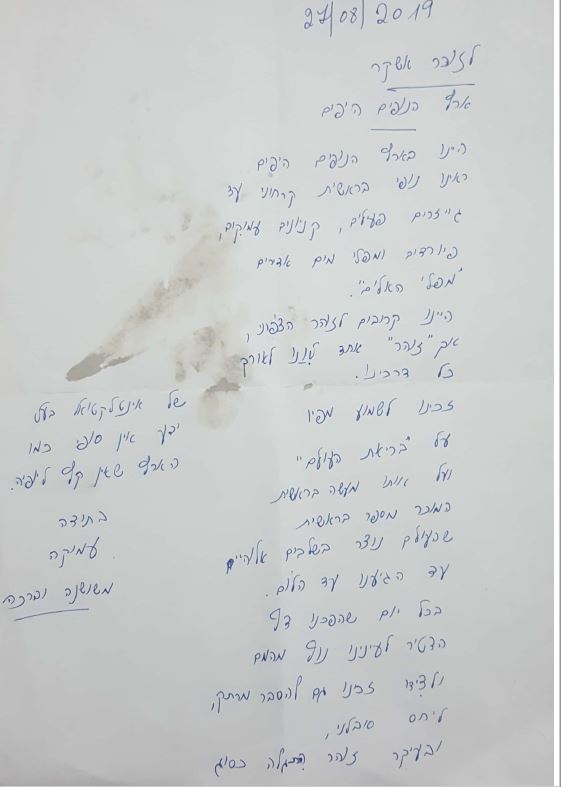 27/08/2019
לזוהר אשקר
ארץ הנופים היפים
היינו בארץ הנופים היפים
ראינו נופי בראשית קרחוני עד
גייזרים פעילים, קניונים עמוקים,
פיורדים ומפלי מים אדירים
"מפלי האלים".
היינו קרובים לזוהר הצפוני,
אך "זוהר" אחד ליוונו לאורך
כל דרכינו.
זכינו לשמוע מפיו
על "בריאת העולם"
ועל אותו מעשה בראשית
המוכר מספר בראשית
שהעולם נוצר בשלבים אלוהיים
עד הגיענו עד הלום.
בכל יום שהפכנו דף
הסתיר לעינינו נוף מהמם
ולצידו זכינו גם להסבר מרתק,
ליחס סובלני,
ובעיקר זוהר התגלה כסוג
של אינטלקטואל בעל
ידע אין סופי כמו
הארץ שאין קץ ליופיה.
בתודה
עמוקה
משושנה וברכה